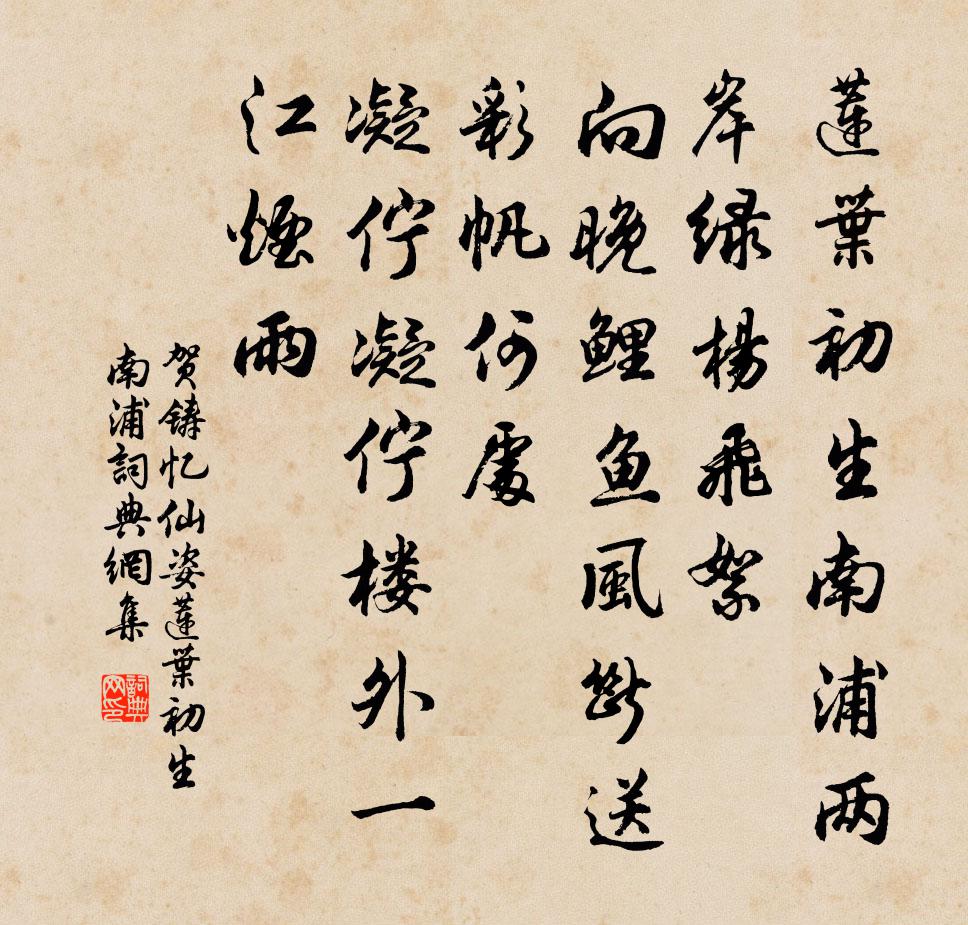 蓮葉初生南浦两
岸绿楊飛絮
向晚鯉魚風斷送
彩帆何處
凝佇凝佇楼外一
江煙雨
贺鑄忆仙姿蓮葉初生
南浦詞典網集
詞典网印